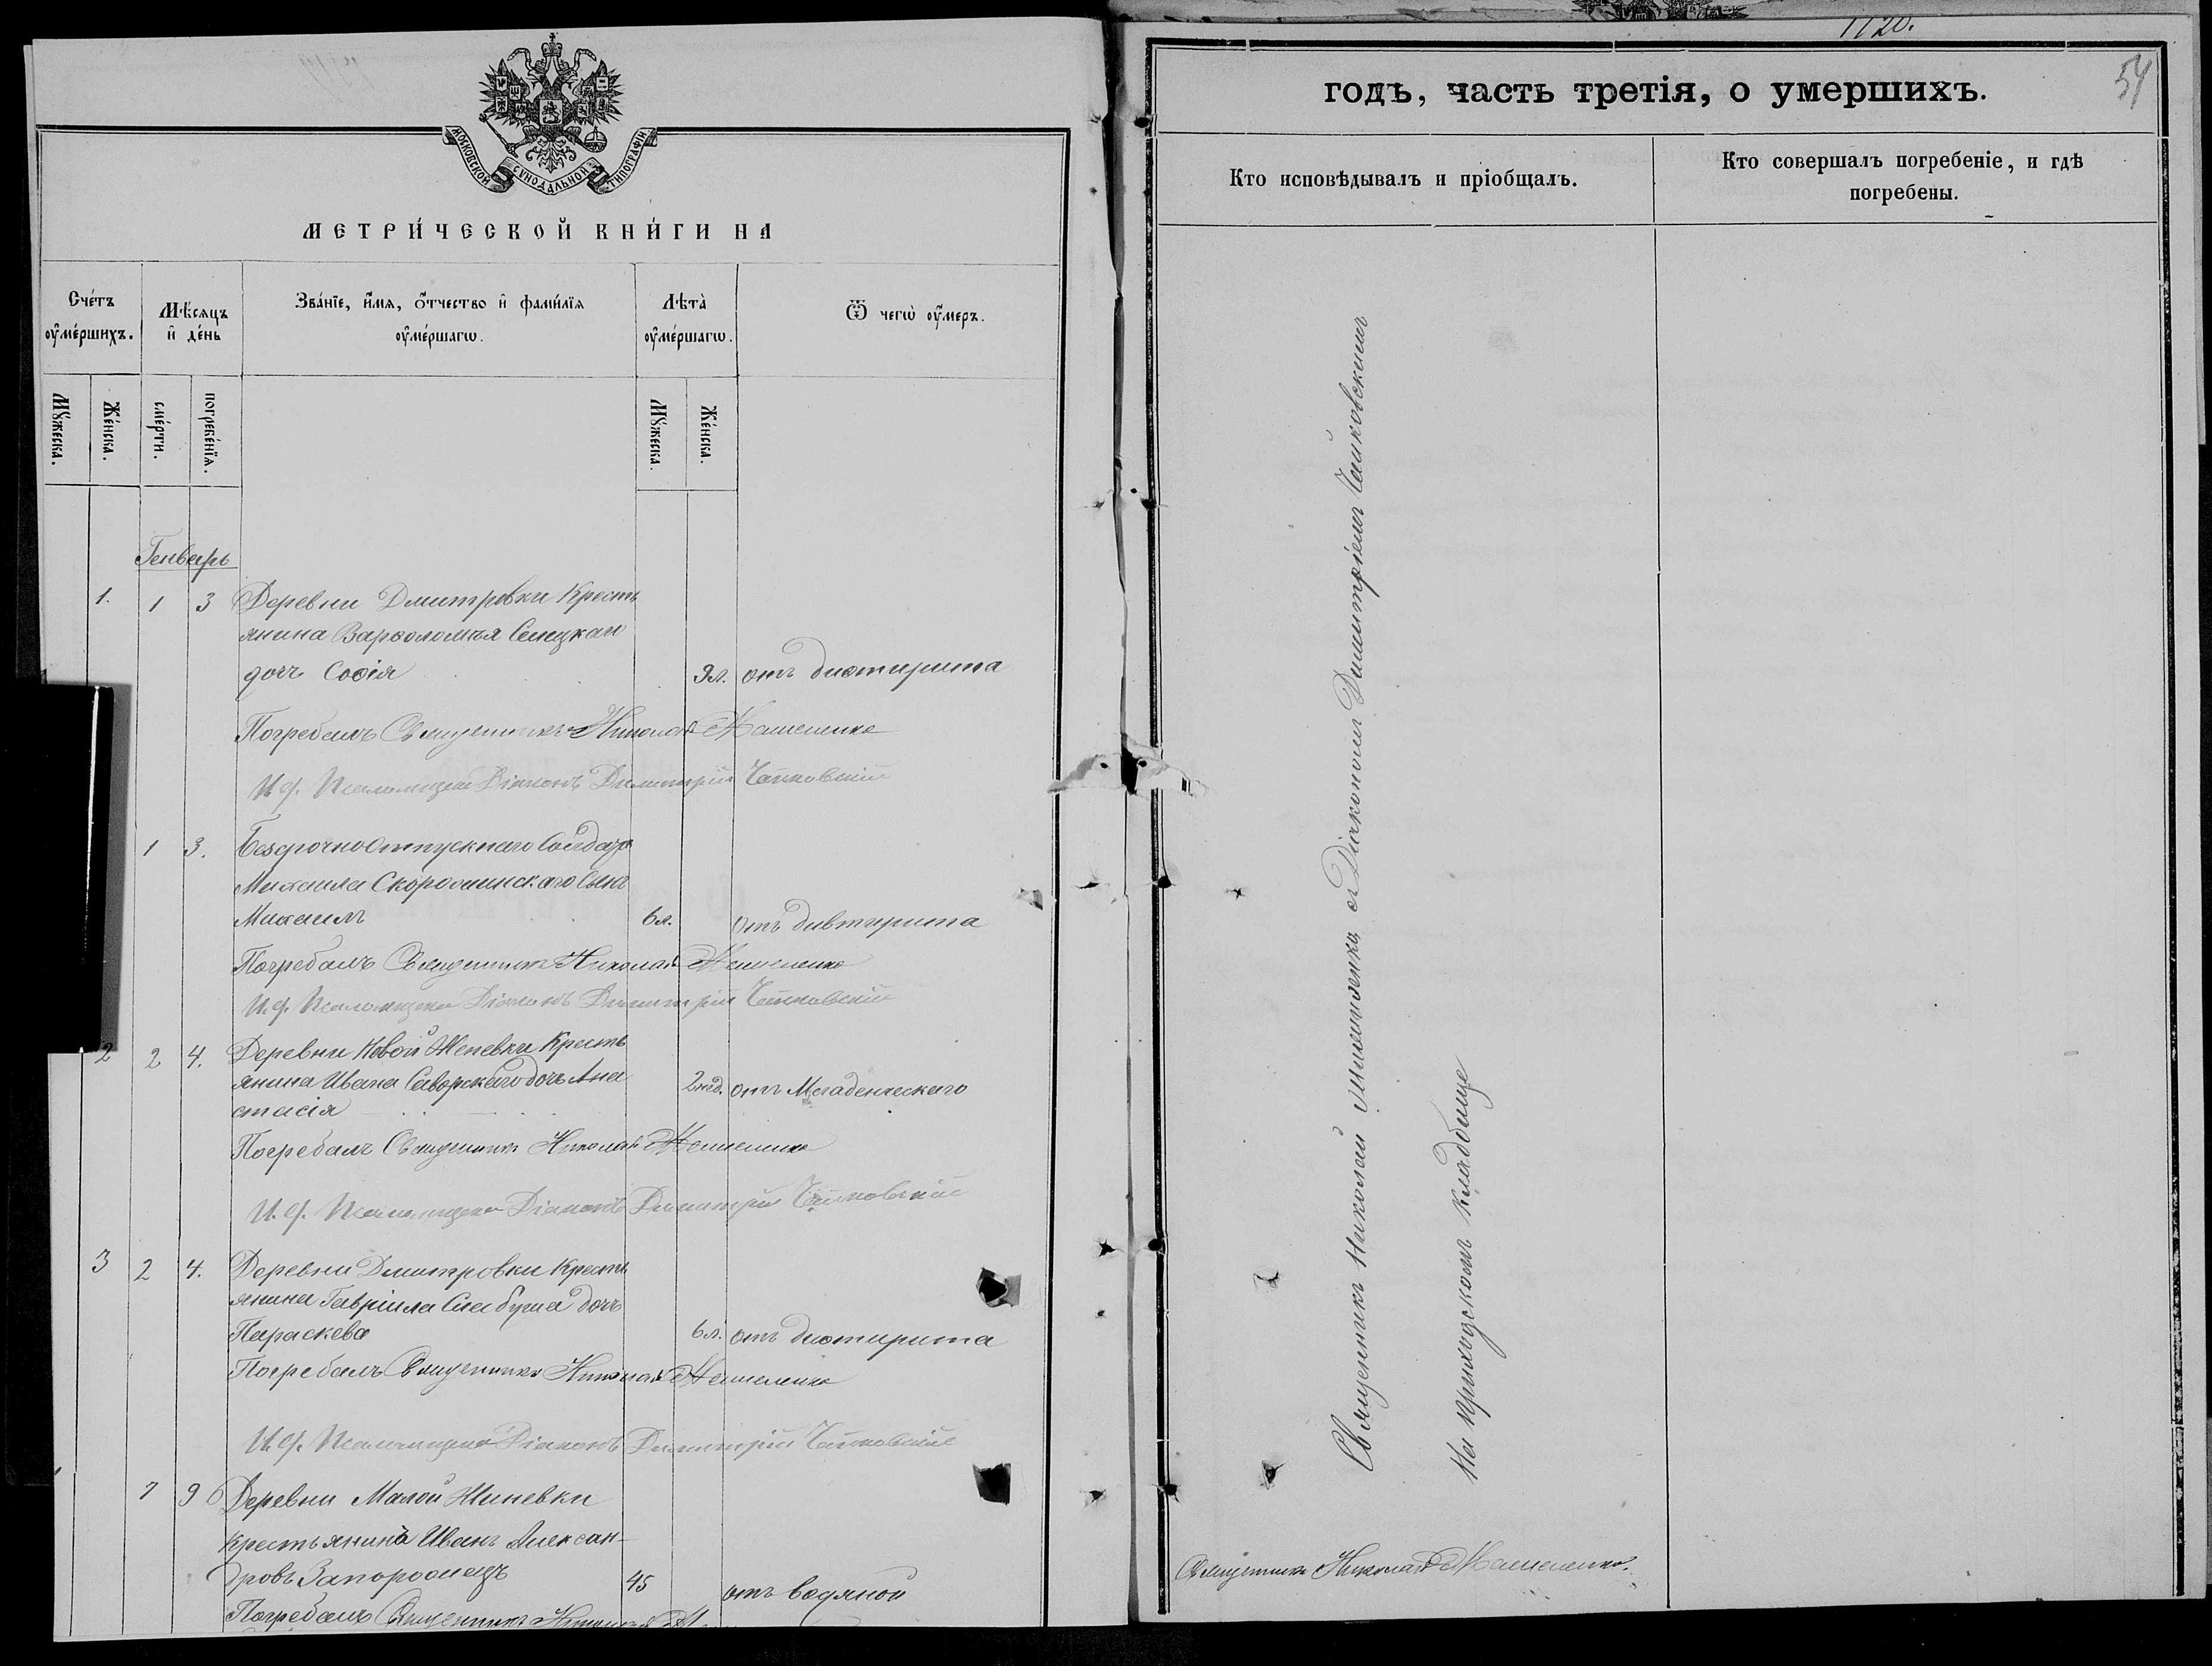 МОСКОВСКОЙ СУНОДАЛЬНОЙ ТИПОГРАФІИ
МЕТРИ́ЧЕСКОЙ КНИ́ГИ НА
Счéтъ ᲂу҆мéршихъ.
Мѣ́сяцъ и҆ дéнь
Звáнїе, и҆́мя, ѻ҆́тчество и҆ фами́лїя ᲂу҆мéршагѡ.
Лѣ́та ᲂу҆мéршагѡ.
Ѿ чегѡ̀ ᲂу҆́меръ.
Мꙋ́жеска.
Жéнска.
смéрти.
погребéнїя.
Мꙋ́жеска.
Жéнска.
Генварь
1. 1 3 Деревни Дмитровки Кресть
янина Варѳоломѣя Сницкаго
дочь Софія 9л. отъ дифтирита
Погребалъ Священникъ Николай
И. д. Псаломщика Діаконъ Димитрій Чайковскій
1 3. Безсрочноотпускнаго Солдата
Михаила Скороминскаго Сынъ
Михаилъ 6л. отъ дивтирита
Погребалъ Священникъ Николай
И. д. Псаломщика Діаконъ Димитрій Чайковскій
2 2 4. Деревни Новой Женевки Кресть
янина Ивана дочь Ана
стасія 2нед. отъ Младенческаго
Погребалъ Священникъ Николай
И. д. Псаломщика Діаконъ Димитрій Чайковскій
3 2 4. Деревни Дмитровки Кресть
янина Гавріила дочь
Параскева 6л. отъ дифтирита
Погребалъ Священникъ Николай
И. д. Псаломщика Діаконъ Димитрій Чайковскій
7 9 Деревни Малой Жиневки
Крестьянинъ Иванъ Алексан-
дровъ Запорожецъ 45 отъ водяной
Погребалъ Священникъ Николай
1120.
54
годъ, часть третія, о умершихъ.
Кто исповѣдывалъ и пріобщалъ.
Кто совершалъ погребеніе, и гдѣ
погребены.
Священникъ Николай съ Діакономъ Димитріемъ Чайковскимъ
На приходскомъ кладбище
Священникъ Николай